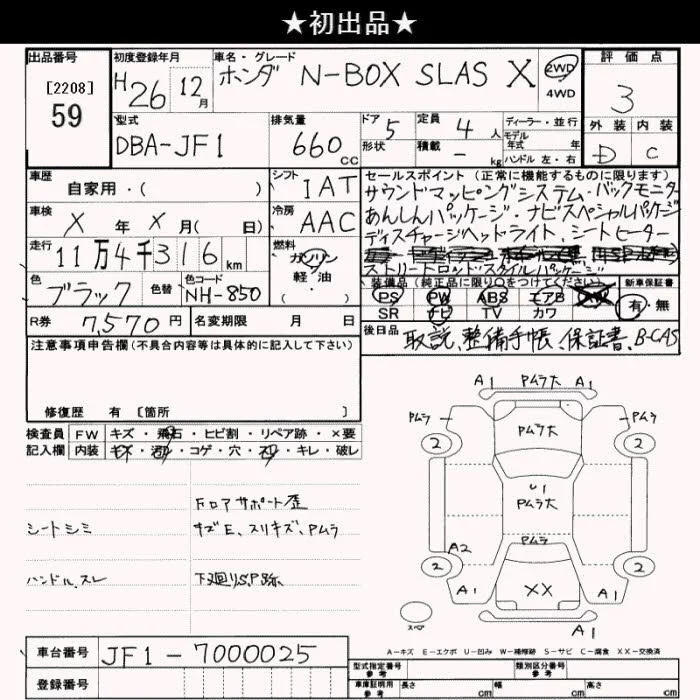 ★初出品★
出品番号
[2208]
59
初度登録年月
H26 12月
車名・グレード
ホンダ N-BOX SLAS X
2WD
4WD
評価点
3
外装 内装
D C
型式
DBA-JF1
排気量
660cc
ドア 5
形状
定員 4人
積載 - kg
ディーラー・並行
モデル
年式 年
ハンドル 左・右
車歴
自家用・( )
シフト
IAT
車検
X年X月( 日)
冷房
AAC
走行
11万4千316km
燃料
ガソリン
軽・油
( )
色
ブラック
色替
色コード
NH-850
R券
7,570円
名変期限 月 日
セールスポイント(正常に機能するものに限ります)
サウンドマッピングシステム・バックモニター
あんしんパッケージ・ナビスペシャルパッケージ
ディスチャージヘッドライト、シートヒーター
ストリートロッド・スタイルパッケージ
装備品(純正品に限り○をつけてください)
PS PW ABS エアB AW
SR ナビ TV カワ
新車保証書
有・無
後日品
取説、整備手帳、保証書、B-CAS
注意事項申告欄(不具合内容等は具体的に記入して下さい)
修復歴 有 [箇所 ]
検査員
記入欄
FW キズ・飛石・ヒビ割・リペア跡・×要
内装 キズ・汚れ・コゲ・穴・スレ・キレ・破レ
シートシミ
ハンドル、スレ
Fロアサポート歪
サズE、スリキズ、PMムラ
下廻りS,P跡、
A1 PMムラ大 A1
PMムラ
PMムラ大
PMムラ
2
2
U1
PMムラ大
PMムラ
A2
2
2
A1
XX
A1
A1
スペア
A-キズ E-エクボ U-凹み W-補修跡 S-サビ C-腐食 XX-交換済
車台番号
JF1-7000025
登録番号
型式指定番号
参考
類別区分番号
参考
車庫証明用
参考
長さ cm 幅 cm 高さ cm